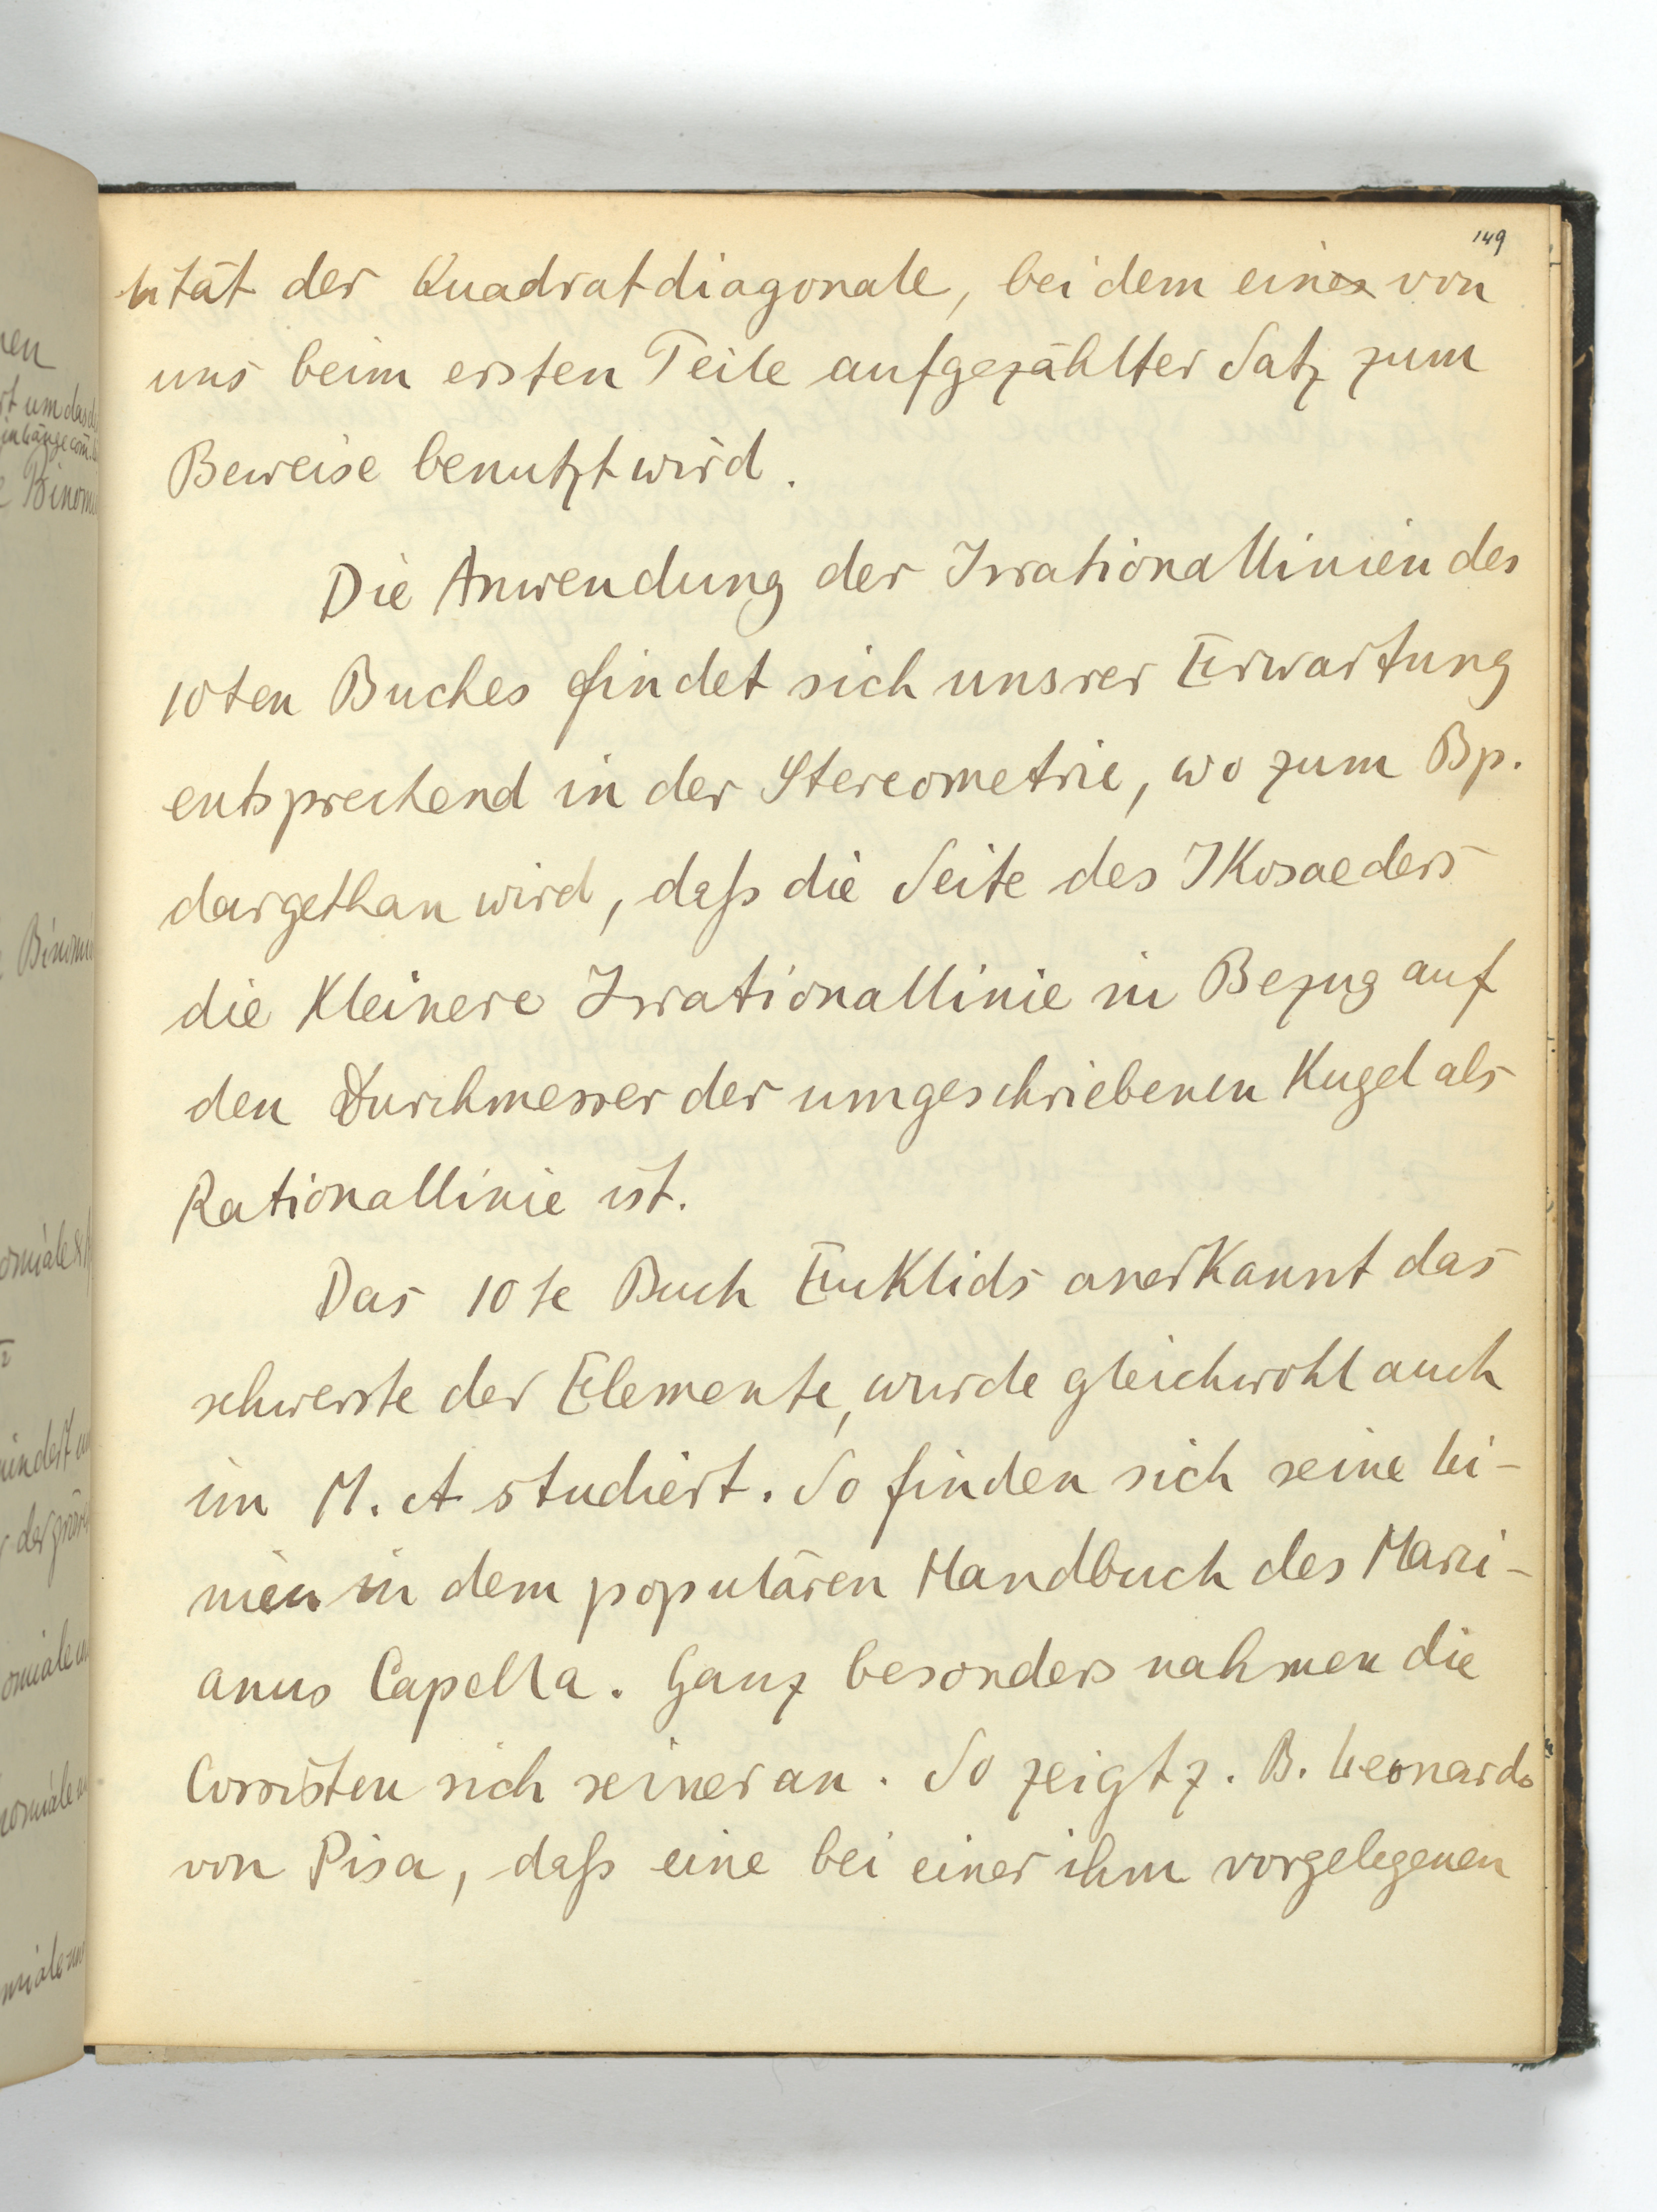 149
lität der Quadratdiagonale, bei dem ein von
uns beim ersten Teile aufgezählter Satz zum
Beweise benutzt wird.
Die Anwendung der Irrationallinien des
10ten Buches findet sich unsrer Erwartung
entsprechend in der Stereometrie, wo zum Bp.
dargethan wird, daß die Seite des Ikosaeders
die kleinere Irrationallinie in Bezug auf
den Durchmesser der umgeschriebenen Kugel als
Rationallinie ist.
Das 10te Buch Euklids anerkannt das
schwerste der Elemente, wurde gleichwohl auch
im M. A studiert. So finden sich seine Li-
nien in dem populären Handbuch des Marzi-
anus Capella. Ganz besonders nahmen die
Cossisten sich seiner an. So zeigt z. B. Leonardo
von Pisa, daß eine bei einer ihm vorgelegenen
nen
rt um das
Binom
Binomi
omiale
mindert
der grösse
omiale
nomiale
miale